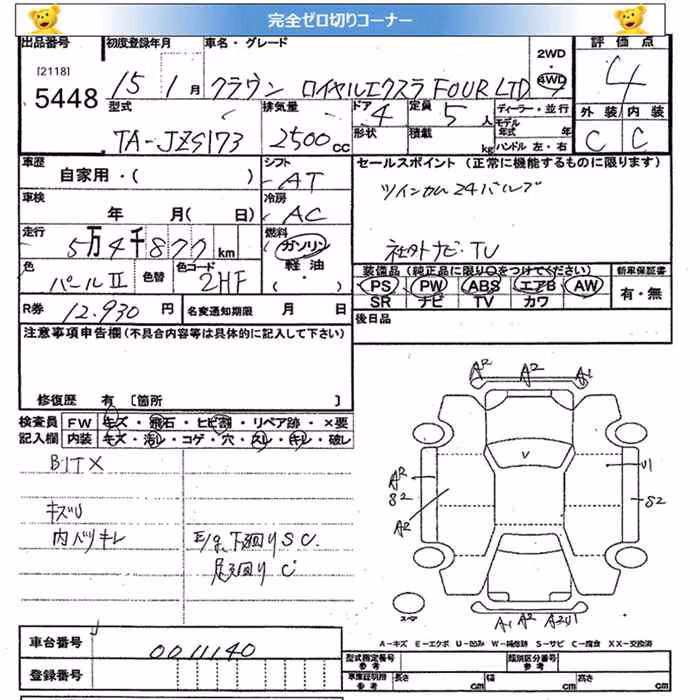 完全ゼロ切りコーナー
出品番号 初度登録年月 車名・グレード 評価点
[2118]
5448
15 1月 クラウン ロイヤルエクストラ FOUR LTD
2WD
・
4WD
4
型式 排気量 ドア 4 定員 5人 ディーラー・並行
モデル年式 年
外装 内装
TA-JZS173 2500cc 形状 積載 kg ハンドル 左・右
C C
車歴 シフト セールスポイント (正常に機能するものに限ります)
自家用・( ) AT
ツインカム24バルブ
車検 冷房
年 月( 日) AC
走行 燃料
5万4千877km ガソリン
社外ナビ・TV
軽油
( ・ )
色 色替 色コード
パールⅡ 2HF
装備品(純正品に限り○をつけてください) 新車保証書
PS PW ABS エアB AW 有・無
SR ナビ TV カワ
R券 12,930円 名変通知期限 月 日
後日品
注意事項申告欄(不具合内容等は具体的に記入して下さい)
修復歴 有 [箇所 ]
検査員 FW キズ・飛石・ヒビ割・リペア跡・×要
記入欄 内装 キズ・汚レ・コゲ・穴・スレ・キレ・破レ
キズU
下廻りSC
足廻りC
A2 A2 A1
V
U1
A2
S2
S2
A2
スペア
A1 A2 A2U1
A-キズ E-エクボ U-凹み W-補修跡 S-サビ C-腐食 XX-交換済
車台番号 0011140
型式指定番号 類別区分番号
参考 参考
登録番号
車庫証明用 長さ 幅 高さ
参考 cm cm cm